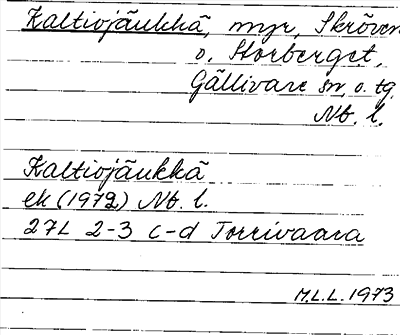 Kaltiojäukkä, myr, Skröven
o. Storberget,
Gällivare sn, o. tg.
Nb. l.
Kaltiojäukkä
ek (1972) Nb. l.
27L 2-3 c-d Torrivaara
M.L.L. 1973